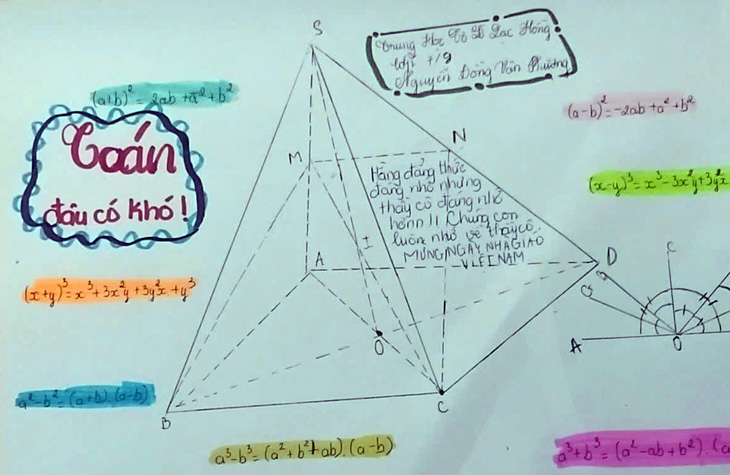 S
Trung Học Cơ Sở Lạc Hồng
Lớp 7/9
Nguyễn Đông Vân Phương
(a+b)² = 2ab + a² + b²
(a-b)² = -2ab + a² + b²
Toán
đâu có khó!
M
N
Hằng đẳng thức
đáng nhớ nhưng
thầy cô đáng nhớ
hơn!! Chúng con
luôn nhớ về thầy cô.
MỪNG NGÀY NHÀ GIÁO
VIỆT NAM
(x-y)³ = x³ - 3x²y + 3y²x
I
A
D
C
(x+y)³ = x³ + 3x²y + 3y²x + y³
O
A
O
a² - b² = (a+b) (a-b)
B
C
a³ - b³ = (a² + b² + ab).(a-b)
a³ + b³ = (a² - ab + b²).(a